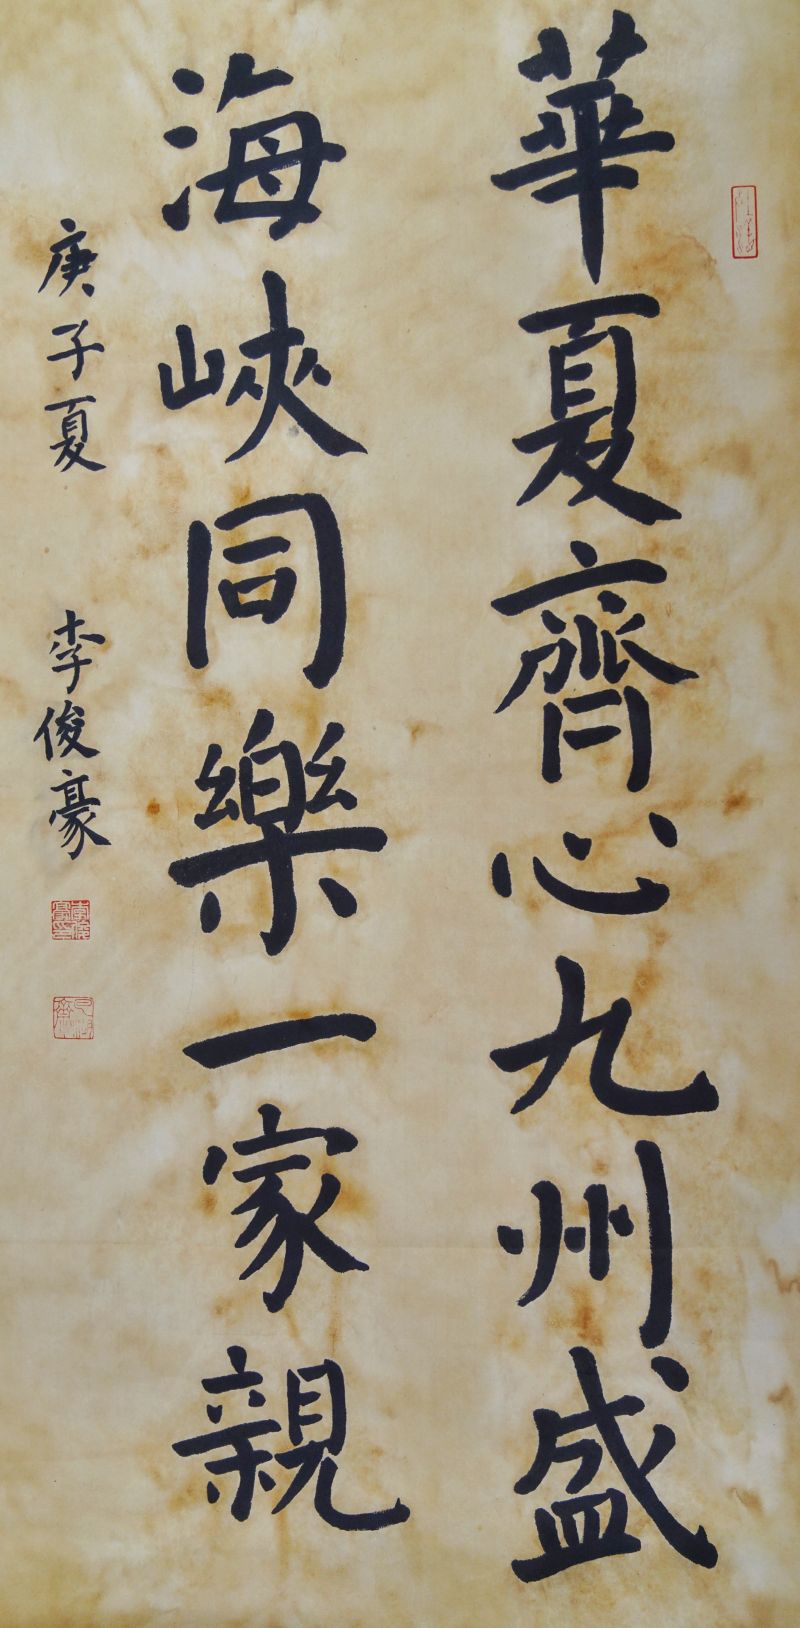 華夏齊心九州盛
海峽同樂一家親
庚子夏 李俊豪